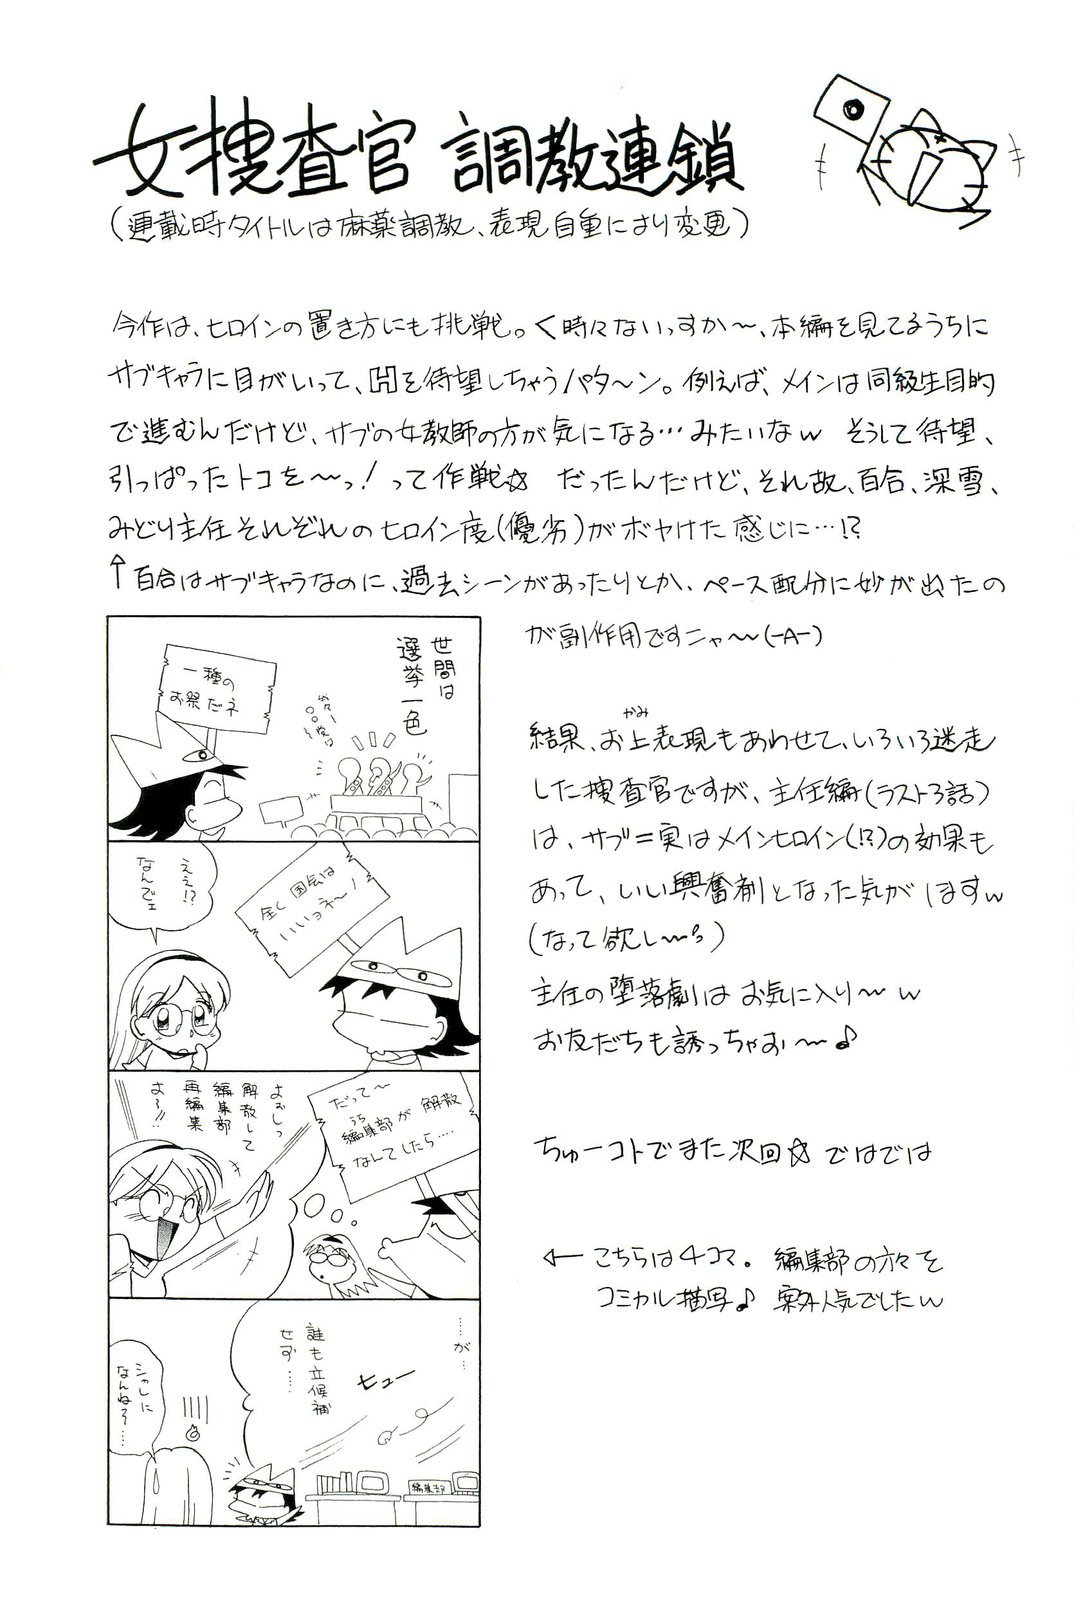 女捜査官 調教連鎖
(連載時タイトルは麻薬調教、表現自重により変更)
今作は、ヒロインの置き方にも挑戦。く時々ないっすか〜、本編を見てるうちに
サブキャラに目がいって、Hを待望しちゃうパタ〜ン。例えば、メインは同級生目的
で進むんだけど、サブの女教師の方が気になる…みたいなw そうして待望、
引っぱったトコを〜っ!って作戦☆ だったんだけど、それ故、百合、深雪、
みどり主任それぞれのヒロイン度(優劣)がボヤけた感じに…!?
↑百合はサブキャラなのに、過去シーンがあったりとか、ペース配分に妙が出たの
が副作用ですニャ〜(-A-)
結果、お上表現もあわせて、いろいろ迷走
かみ
した捜査官ですが、主任編(ラスト3話)
は、サブ=実はメインヒロイン(!?)の効果も
あって、いい興奮剤となった気がしますw
(なって欲し〜っ)
主任の堕落劇はお気に入り〜w
お友だちも誘っちゃお〜♪
ちゅーコトでまた次回☆ ではでは
←こちらは4コマ。編集部の方々を
コミカル描写♪ 案外人気でしたw
世間は
選挙一色
一種の
お祭だネ
全く国会は
いいョネ〜!
ええ!?
なんでェ
だって〜
うち
編集部が解散
なんてしたら….
よぉしっ
解散して
編集部
再編集
よ〜!!
……が…
誰も立候補
せず……
ヒュー
編集部
シャレに
なんね〜……